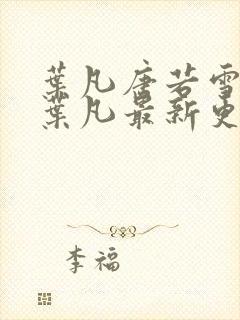 葉凡唐若雪
葉凡最新更
李福